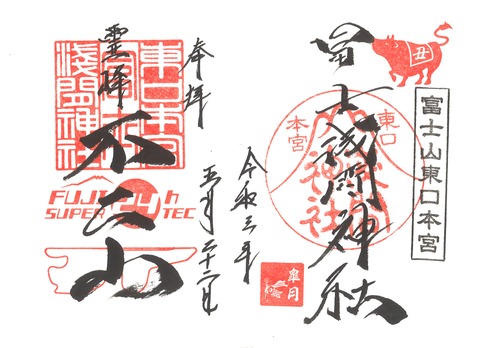 丑
富士山東口本宮
冨士浅間神社
東口
本宮
浅間
神社
皐月
令和三年
五月二十二日
奉拝
霊峰
不二山
東口本宮
冨士
浅間神社
FUJI 24h
SUPER TEC